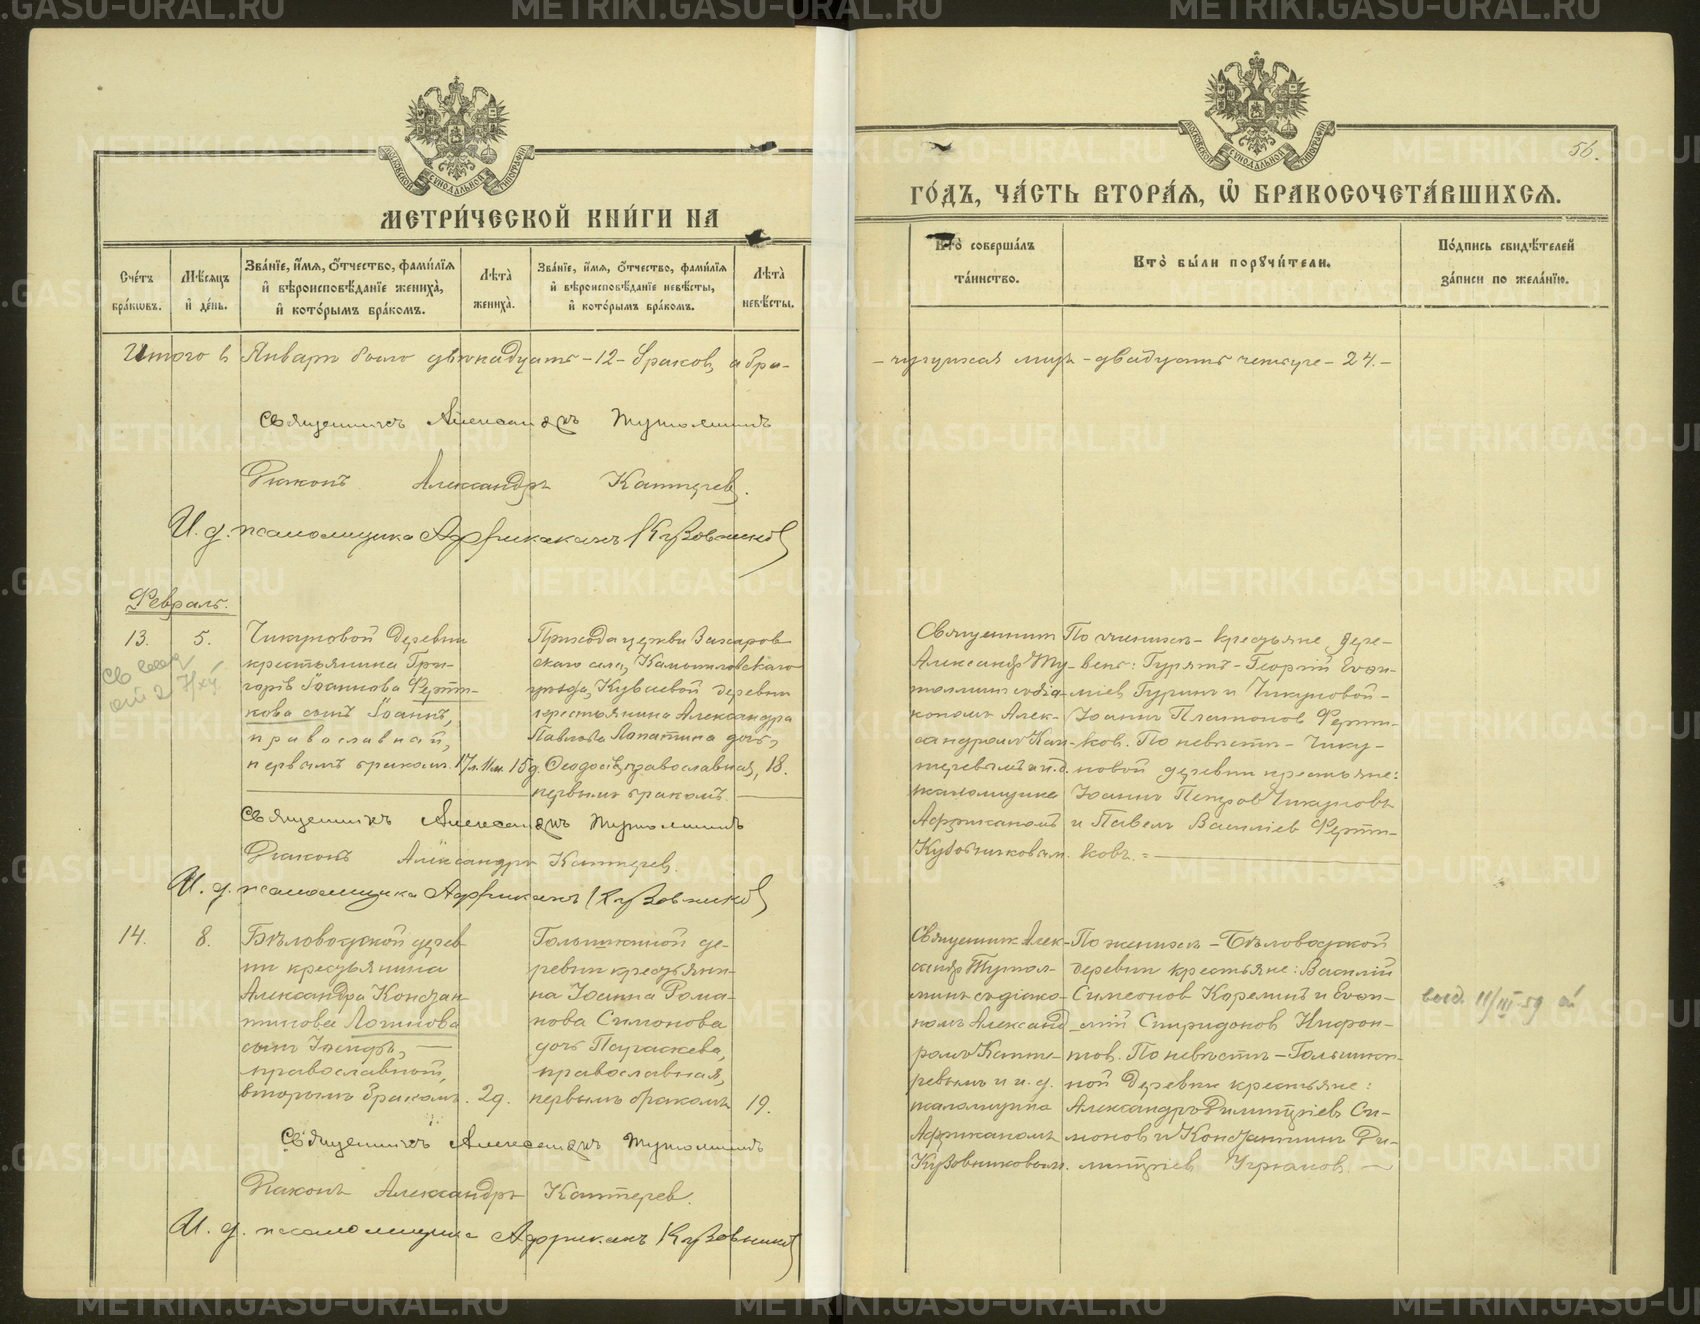 МЕТРИ́ЧЕСКОЙ КНИ́ГИ НА
ГО́ДЪ, ЧА́СТЬ ВТОРА́Я, Ѡ БРАКОСОЧЕТА́ВШИХСЯ.
56.
МОСКОВСКОЙ СѴНОДАЛЬНОЙ ТИПОГРАФІИ
МОСКОВСКОЙ СѴНОДАЛЬНОЙ ТИПОГРАФІИ
Сче́тъ бра́кѡвъ.
Мѣ́сяцъ и҆ де́нь.
Зва́нїе, и҆́мя, ѻ҆́тчество, фами́лїя и҆ вѣроисповѣ́данїе жениха̀, и҆ кото́рымъ бра́комъ.
Лѣ́та̀ жениха̀.
Зва́нїе, и҆́мя, ѻ҆́тчество, фами́лїя и҆ вѣроисповѣ́данїе невѣ́сты, и҆ кото́рымъ бра́комъ.
Лѣ́та̀ невѣ́сты.
Кто̀ соверша́лъ та́инство.
Кто̀ бы́ли порꙋчи́тели.
По́дпись свидѣ́телей за́писи по жела́нїю.
Итого в Январѣ было двѣнадцать -12- браковъ, а бра-
- чущихся лицъ - двадцать четыре - 24. -
Священникъ Александръ Тутолминъ
Діаконъ Александръ Каптеревъ.
И. д. псаломщика Африканъ Кузовниковъ
Февраль.
13.
5.
Чикуновой деревни
крестьянина Гри-
горія Іоаннова Ферти-
кова сынъ Іоаннъ,
православный,
первымъ бракомъ.
17 л. 11 м. 15 д.
Прихода церкви Захаров-
скаго села, Камышловскаго
уѣзда, Куваевой деревни
крестьянина Александра
Павлова Лопатина дочь,
Ѳеодосія, православная,
первымъ бракомъ.
18.
Священникъ
Александръ Ту-
толминъ съ діа-
кономъ Алек-
сандромъ Кап-
теревымъ и и. д.
псаломщика
Африканомъ
Кузовниковым.
По женихѣ - крестьяне дере-
вень: Гурятъ - Георгій Еван-
міевъ Гуринъ и Чикуновой -
Іоаннъ Платоновъ Ферти-
ковъ. По невѣстѣ - Чику-
новой деревни крестьяне:
Іоаннъ Петровъ Чикуновъ
и Павелъ Василіевъ Ферти-
ковъ. =
Священникъ Александръ Тутолминъ
Діаконъ Александръ Каптеревъ.
И. д. псаломщика Африканъ Кузовниковъ
14.
8.
Бѣловодской дерев-
ни крестьянина
Александра Констан-
тинова Логинова
сынъ Іосифъ,
православный,
вторымъ бракомъ.
29.
Голышкиной де-
ревни крестьяни-
на Іоанна Рома-
нова Симонова
дочь Параскева,
православная,
первымъ бракомъ
19.
Священник Алек-
сандръ Тутол-
минъ съ діако-
номъ Александ-
ромъ Капте-
ревымъ и и. д.
псаломщика
Африканомъ
Кузовниковым.
По женихѣ - Бѣловодской
деревни крестьяне: Василій
Симеоновъ Корелинъ и Еван-
мій Спиридоновъ Нифон-
товъ. По невѣстѣ - Голышки-
ной деревни крестьяне:
Александръ Димитріевъ Си-
моновъ и Константинъ Ди-
митріевъ
Священникъ Александръ Тутолминъ
Діаконъ Александръ Каптеревъ.
И. д. псаломщика Африканъ Кузовниковъ
METRIKI.GASO-URAL.RU